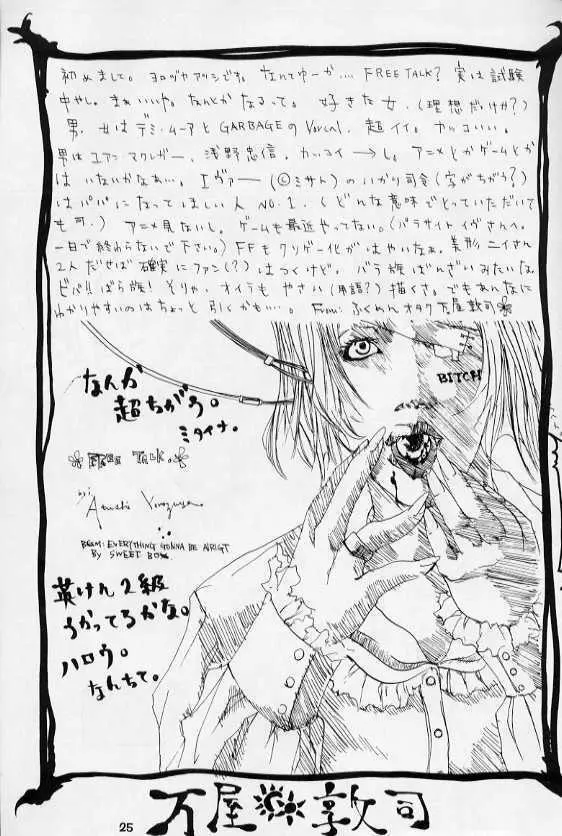 初めまして。ヨロヅヤアツシです。なんてゆーか… FREE TALK? 実は試験
中やし。まぁいいや。なんとかなるって。好きな女、(理想だけか?)
男、女はデミ・ムーアとGARBAGEのVocal、超イイ。カッコいい。
男はユアン・マクレガー、浅野忠信。カッコイーし。アニメとかゲームとか
はいないかなあ…。エヴァー(©ミサト)のいかり司令(字がちがう?)
はパパになってほしい人NO.1。(どんな意味でとっていただいて
も可。) アニメ見ないし。ゲームも最近やってない。(パラサイトイヴさんへ。
一日で終わらないで下さい。) FFもクソゲー化がはやいなぁ。美形ニイさん
2人だせば確実にファン(?)はつくけど。バラ族ばんざいみたいな
ビバ!!ばら族! そりゃ、オイラもやさい(用語?)描くさ。でもあんなに
わかりやすいのはちょっと引くかもい…。From: ふくめんオタク万屋敦司
BITCH
なんか
超ちがう。
ミタイナ。
FREE TALK.
by: Atsushi Yorozuya
BGM: EVERYTHING GONNA BE AIRIGT
By SWEET BOX
英けん2級
うかってるかな。
ハロウ。
なんちて。
万屋 敦司
25